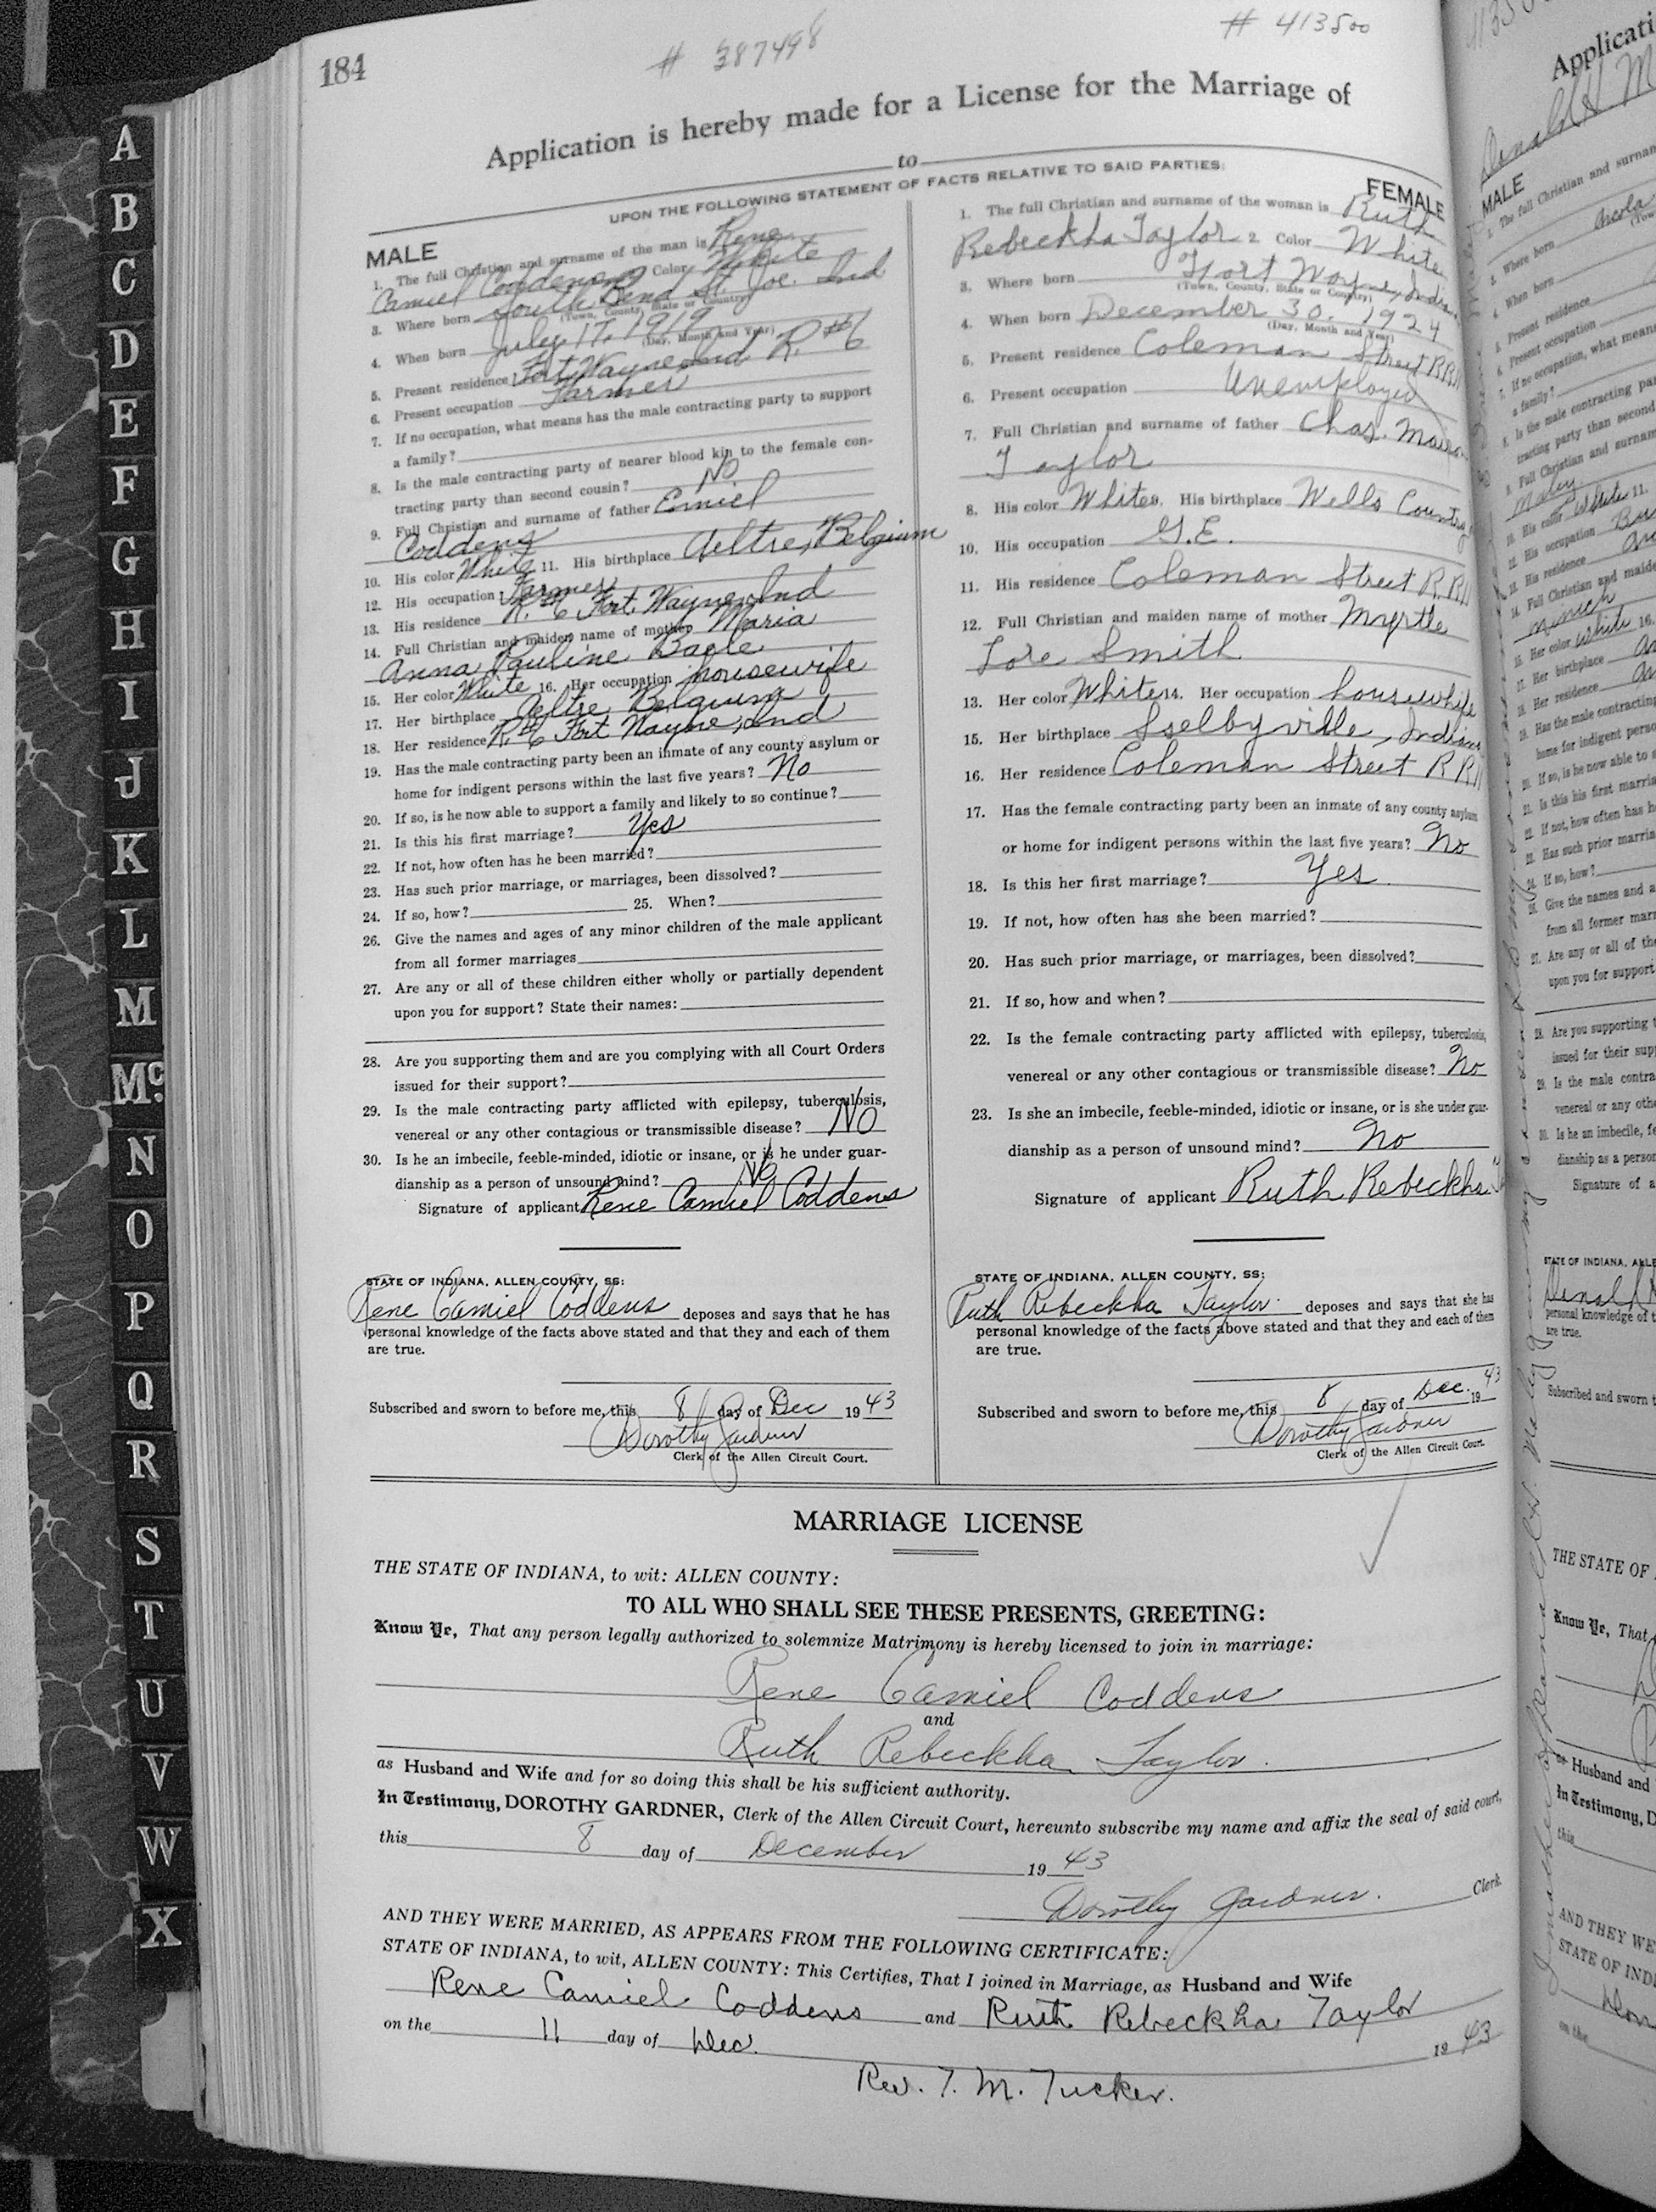 184
# 387498
# 413500
Application is hereby made for a License for the Marriage of
to
UPON THE FOLLOWING STATEMENT OF FACTS RELATIVE TO SAID PARTIES:
MALE
1. The full Christian and surname of the man is Rene
Camiel Coddens 2. Color White
3. Where born South Bend St. Joe. Ind
(Town, County, State or Country)
4. When born July 17, 1919
(Day, Month and Year)
5. Present residence Fort Wayne Ind R. #6
6. Present occupation Farmer
7. If no occupation, what means has the male contracting party to support
a family?
8. Is the male contracting party of nearer blood kin to the female con-
tracting party than second cousin? No
9. Full Christian and surname of father Emiel
Coddens
10. His color White 11. His birthplace Aeltre, Belgium
12. His occupation Farmer
13. His residence R. #6 Fort Wayne, Ind
14. Full Christian and maiden name of mother Maria
Anna Pauline Baele
15. Her color White 16. Her occupation housewife
17. Her birthplace Aeltre Belgium
18. Her residence R. #6 Fort Wayne, Ind
19. Has the male contracting party been an inmate of any county asylum or
home for indigent persons within the last five years? No
20. If so, is he now able to support a family and likely to so continue?
21. Is this his first marriage? Yes
22. If not, how often has he been married?
23. Has such prior marriage, or marriages, been dissolved?
24. If so, how? 25. When?
26. Give the names and ages of any minor children of the male applicant
from all former marriages
27. Are any or all of these children either wholly or partially dependent
upon you for support? State their names:
28. Are you supporting them and are you complying with all Court Orders
issued for their support?
29. Is the male contracting party afflicted with epilepsy, tuberculosis,
venereal or any other contagious or transmissible disease? No
30. Is he an imbecile, feeble-minded, idiotic or insane, or is he under guar-
dianship as a person of unsound mind? No
Signature of applicant Rene Camiel Coddens
STATE OF INDIANA, ALLEN COUNTY, SS:
Rene Camiel Coddens deposes and says that he has
personal knowledge of the facts above stated and that they and each of them
are true.
Subscribed and sworn to before me, this 8 day of Dec 1943
Dorothy Gardner
Clerk of the Allen Circuit Court.
FEMALE
1. The full Christian and surname of the woman is Ruth
Rebeckha Taylor 2. Color White
3. Where born Fort Wayne, Indiana
(Town, County, State or Country)
4. When born December 30, 1924
(Day, Month and Year)
5. Present residence Coleman Street R.R.
6. Present occupation Unemployed
7. Full Christian and surname of father Chas.
Taylor
8. His color White 9. His birthplace Wells County
10. His occupation G.E.
11. His residence Coleman Street R.R.
12. Full Christian and maiden name of mother Myrtle
Lore Smith
13. Her color White 14. Her occupation housewhife
15. Her birthplace Sselbyville, Indiana
16. Her residence Coleman Street R.R.
17. Has the female contracting party been an inmate of any county asylum
or home for indigent persons within the last five years? No
18. Is this her first marriage? Yes
19. If not, how often has she been married?
20. Has such prior marriage, or marriages, been dissolved?
21. If so, how and when?
22. Is the female contracting party afflicted with epilepsy, tuberculosis,
venereal or any other contagious or transmissible disease? No
23. Is she an imbecile, feeble-minded, idiotic or insane, or is she under guar-
dianship as a person of unsound mind? No
Signature of applicant Ruth Rebeckha
STATE OF INDIANA, ALLEN COUNTY, SS:
Ruth Rebeckha Taylor deposes and says that she has
personal knowledge of the facts above stated and that they and each of them
are true.
Subscribed and sworn to before me, this 8 day of Dec. 1943
Dorothy Gardner
Clerk of the Allen Circuit Court.
MARRIAGE LICENSE
THE STATE OF INDIANA, to wit: ALLEN COUNTY:
TO ALL WHO SHALL SEE THESE PRESENTS, GREETING:
Know Ye, That any person legally authorized to solemnize Matrimony is hereby licensed to join in marriage:
Rene Camiel Coddens
and
Ruth Rebeckha Taylor.
as Husband and Wife and for so doing this shall be his sufficient authority.
In Testimony, DOROTHY GARDNER, Clerk of the Allen Circuit Court, hereunto subscribe my name and affix the seal of said court,
this 8 day of December 1943
Dorothy Gardner. Clerk.
AND THEY WERE MARRIED, AS APPEARS FROM THE FOLLOWING CERTIFICATE:
STATE OF INDIANA, to wit, ALLEN COUNTY: This Certifies, That I joined in Marriage, as Husband and Wife
Rene Camiel Coddens and Ruth Rebeckha Taylor
on the 11 day of Dec. 1943
Rev. T. M. Tucker.
A
B
C
D
E
F
G
H
I
J
K
L
M
Mc.
N
O
P
Q
R
S
T
U
V
W
X